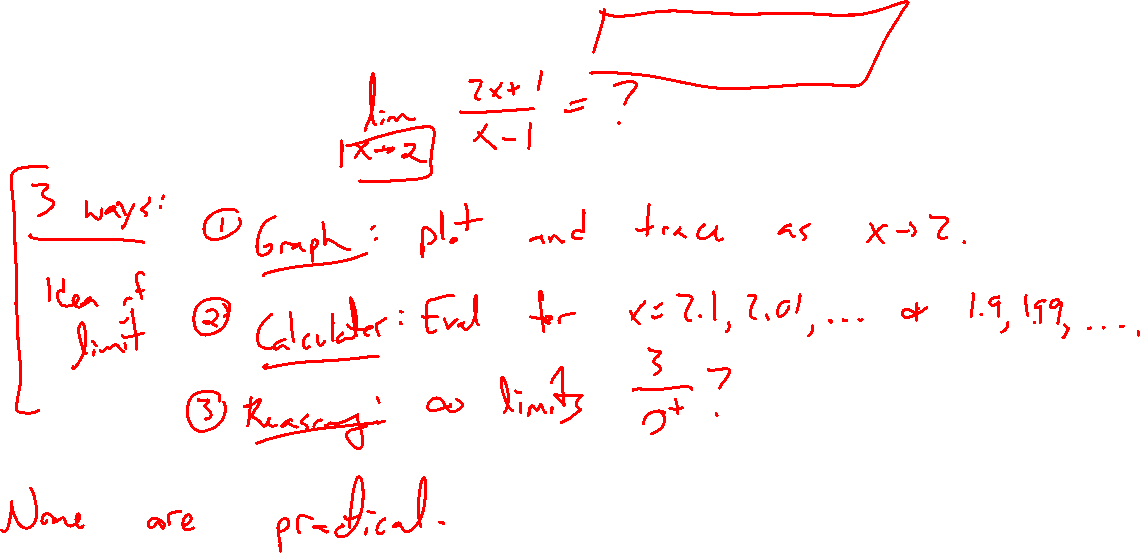 lim x→2 (2x+1)/(x-1) = ?
3 ways:
Idea of
limit
① Graph: plot and trace as x→2.
② Calculator: Eval for x=2.1, 2.01, ... & 1.9, 1.99, ....
③ Reasoning: ∞ limits 3/0⁺?
None are practical.